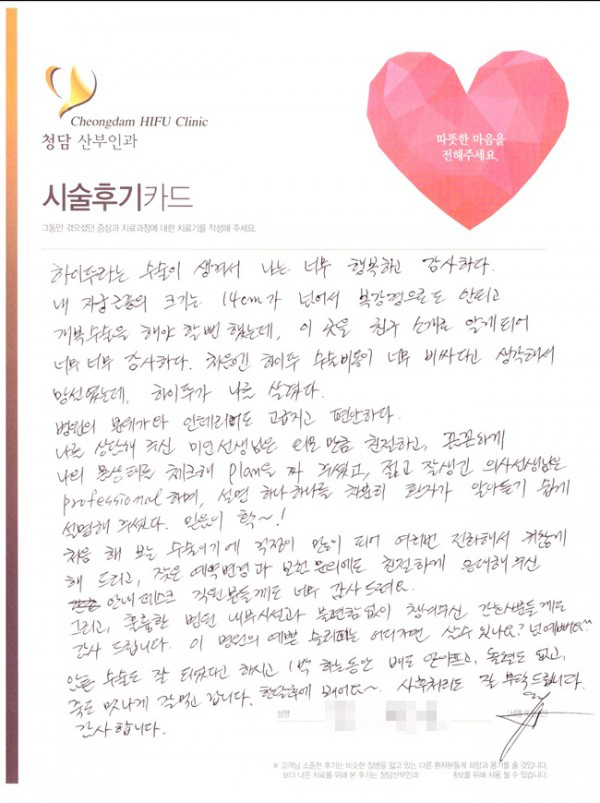 Cheongdam HIFU Clinic
청담 산부인과
따뜻한 마음을
전해주세요.
시술후기카드
그동안 겪으셨던 증상과 치료과정에 대한 치료기를 작성해 주세요.
하이푸라는 수술이 생겨서 나는 너무 행복하고 감사하다.
내 자궁근종의 크기는 14cm가 넘어서 복강경으로도 안되고
개복수술을 해야 할 뻔 했는데, 이 곳을 친구 소개로 알게되어
너무너무 감사하다. 처음엔 하이푸 수술비용이 너무 비싸다고 생각해서
망설였는데, 하이푸가 나를 살렸다.
병원의 분위기와 인테리어도 고급지고 편안하다.
나를 상담해 주신 미인선생님은 외모만큼 친절하고, 꼼꼼하게
나의 몸상태를 체크해 plan을 짜 주셨고, 젊고 잘생긴 의사선생님은
professional 하며, 설명 하나하나를 차분히 환자가 알아듣기 쉽게
설명해 주셨다. 믿음이 확~!
처음 해 보는 수술이기에 걱정이 많이 되어 여러번 전화해서 귀찮게
해 드리고, 잦은 예약변경과 보험문의에도 친절하게 응대해주신
안내데스크 직원분들께도 너무 감사드려요.
그리고, 훌륭한 병원 내부시설과 불편함없이 챙겨주신 간호사분들께도
감사 드립니다. 이 병원의 예쁜 슬리퍼는 어디가면 살수 있나요? 넘 예뻐요^^
암튼 수술도 잘 되었다고 하시고 1박 하는동안 배도 안아프고, 불편도 없고,
죽도 맛나게 잘먹고 갑니다. 한달후에 뵈어요~. 사후처리도 잘 부탁드립니다.
감사합니다.
성명
※ 고객님 소중한 후기는 비슷한 질병을 앓고 있는 다른 환자분들께 희망과 용기를 줄 것입니다.
보다 나은 치료를 위해 본 후기는 청담산부인과 홍보를 위해 사용 될 수 있습니다.